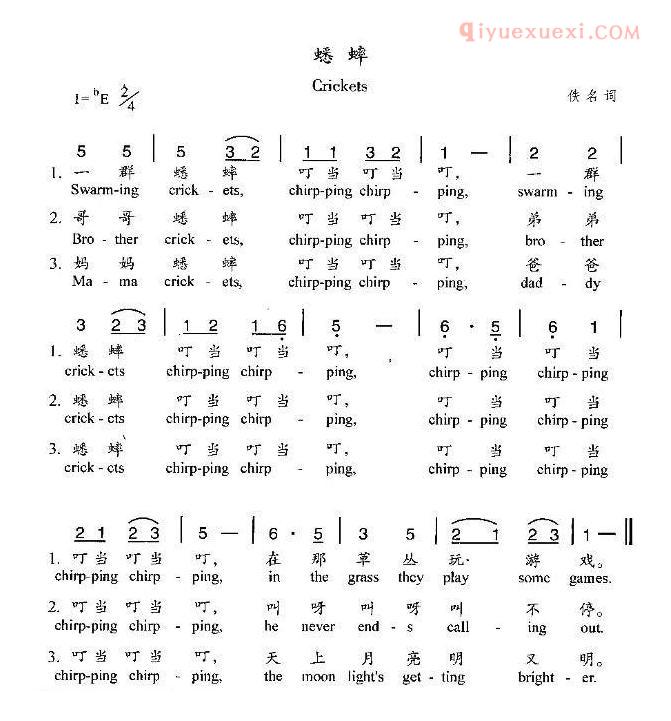 qiyuexuexi.com
蟋蟀
Crickets
1=♭E 2/4
佚名词
5 5 | 5 3 2 | 1 1 3 2 | 1 — | 2 2 |
1. 一 群 蟋 蟀 叮 当 叮 当 叮， 一 群
Swarm-ing crick - ets, chirp-ping chirp - ping, swarm - ing
2. 哥 哥 蟋 蟀 叮 当 叮 当 叮， 弟 弟
Bro - ther crick - ets, chirp-ping chirp - ping, bro - ther
3. 妈 妈 蟋 蟀 叮 当 叮 当 叮， 爸 爸
Ma - ma crick - ets, chirp-ping chirp - ping, dad - dy
3 2 3 | 1 2 1 6 | 5 — | 6 · 5 | 6 1 |
1. 蟋 蟀 叮 当 叮 当 叮， 叮 当 叮 当
crick - ets chirp-ping chirp - ping, chirp - ping chirp - ping
2. 蟋 蟀 叮 当 叮 当 叮， 叮 当 叮 当
crick - ets chirp-ping chirp - ping, chirp - ping chirp - ping
3. 蟋 蟀 叮 当 叮 当 叮， 叮 当 叮 当
crick - ets chirp-ping chirp - ping, chirp - ping chirp - ping
2 1 2 3 | 5 — | 6 · 5 | 3 5 | 2 1 2 3 | 1 — ‖
1. 叮 当 叮 当 叮， 在 那 草 丛 玩· 游 戏。
chirp-ping chirp - ping, in the grass they play some games.
2. 叮 当 叮 当 叮， 叫 呀 叫 呀 叫 不 停。
chirp-ping chirp - ping, he never end - s call - ing out.
3. 叮 当 叮 当 叮， 天 上 月 亮 明 又 明。
chirp-ping chirp - ping, the moon light's get - ting bright - er.